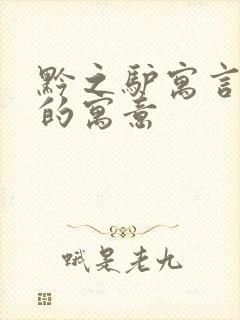 黔之驴寓言
的寓意
哦是老九